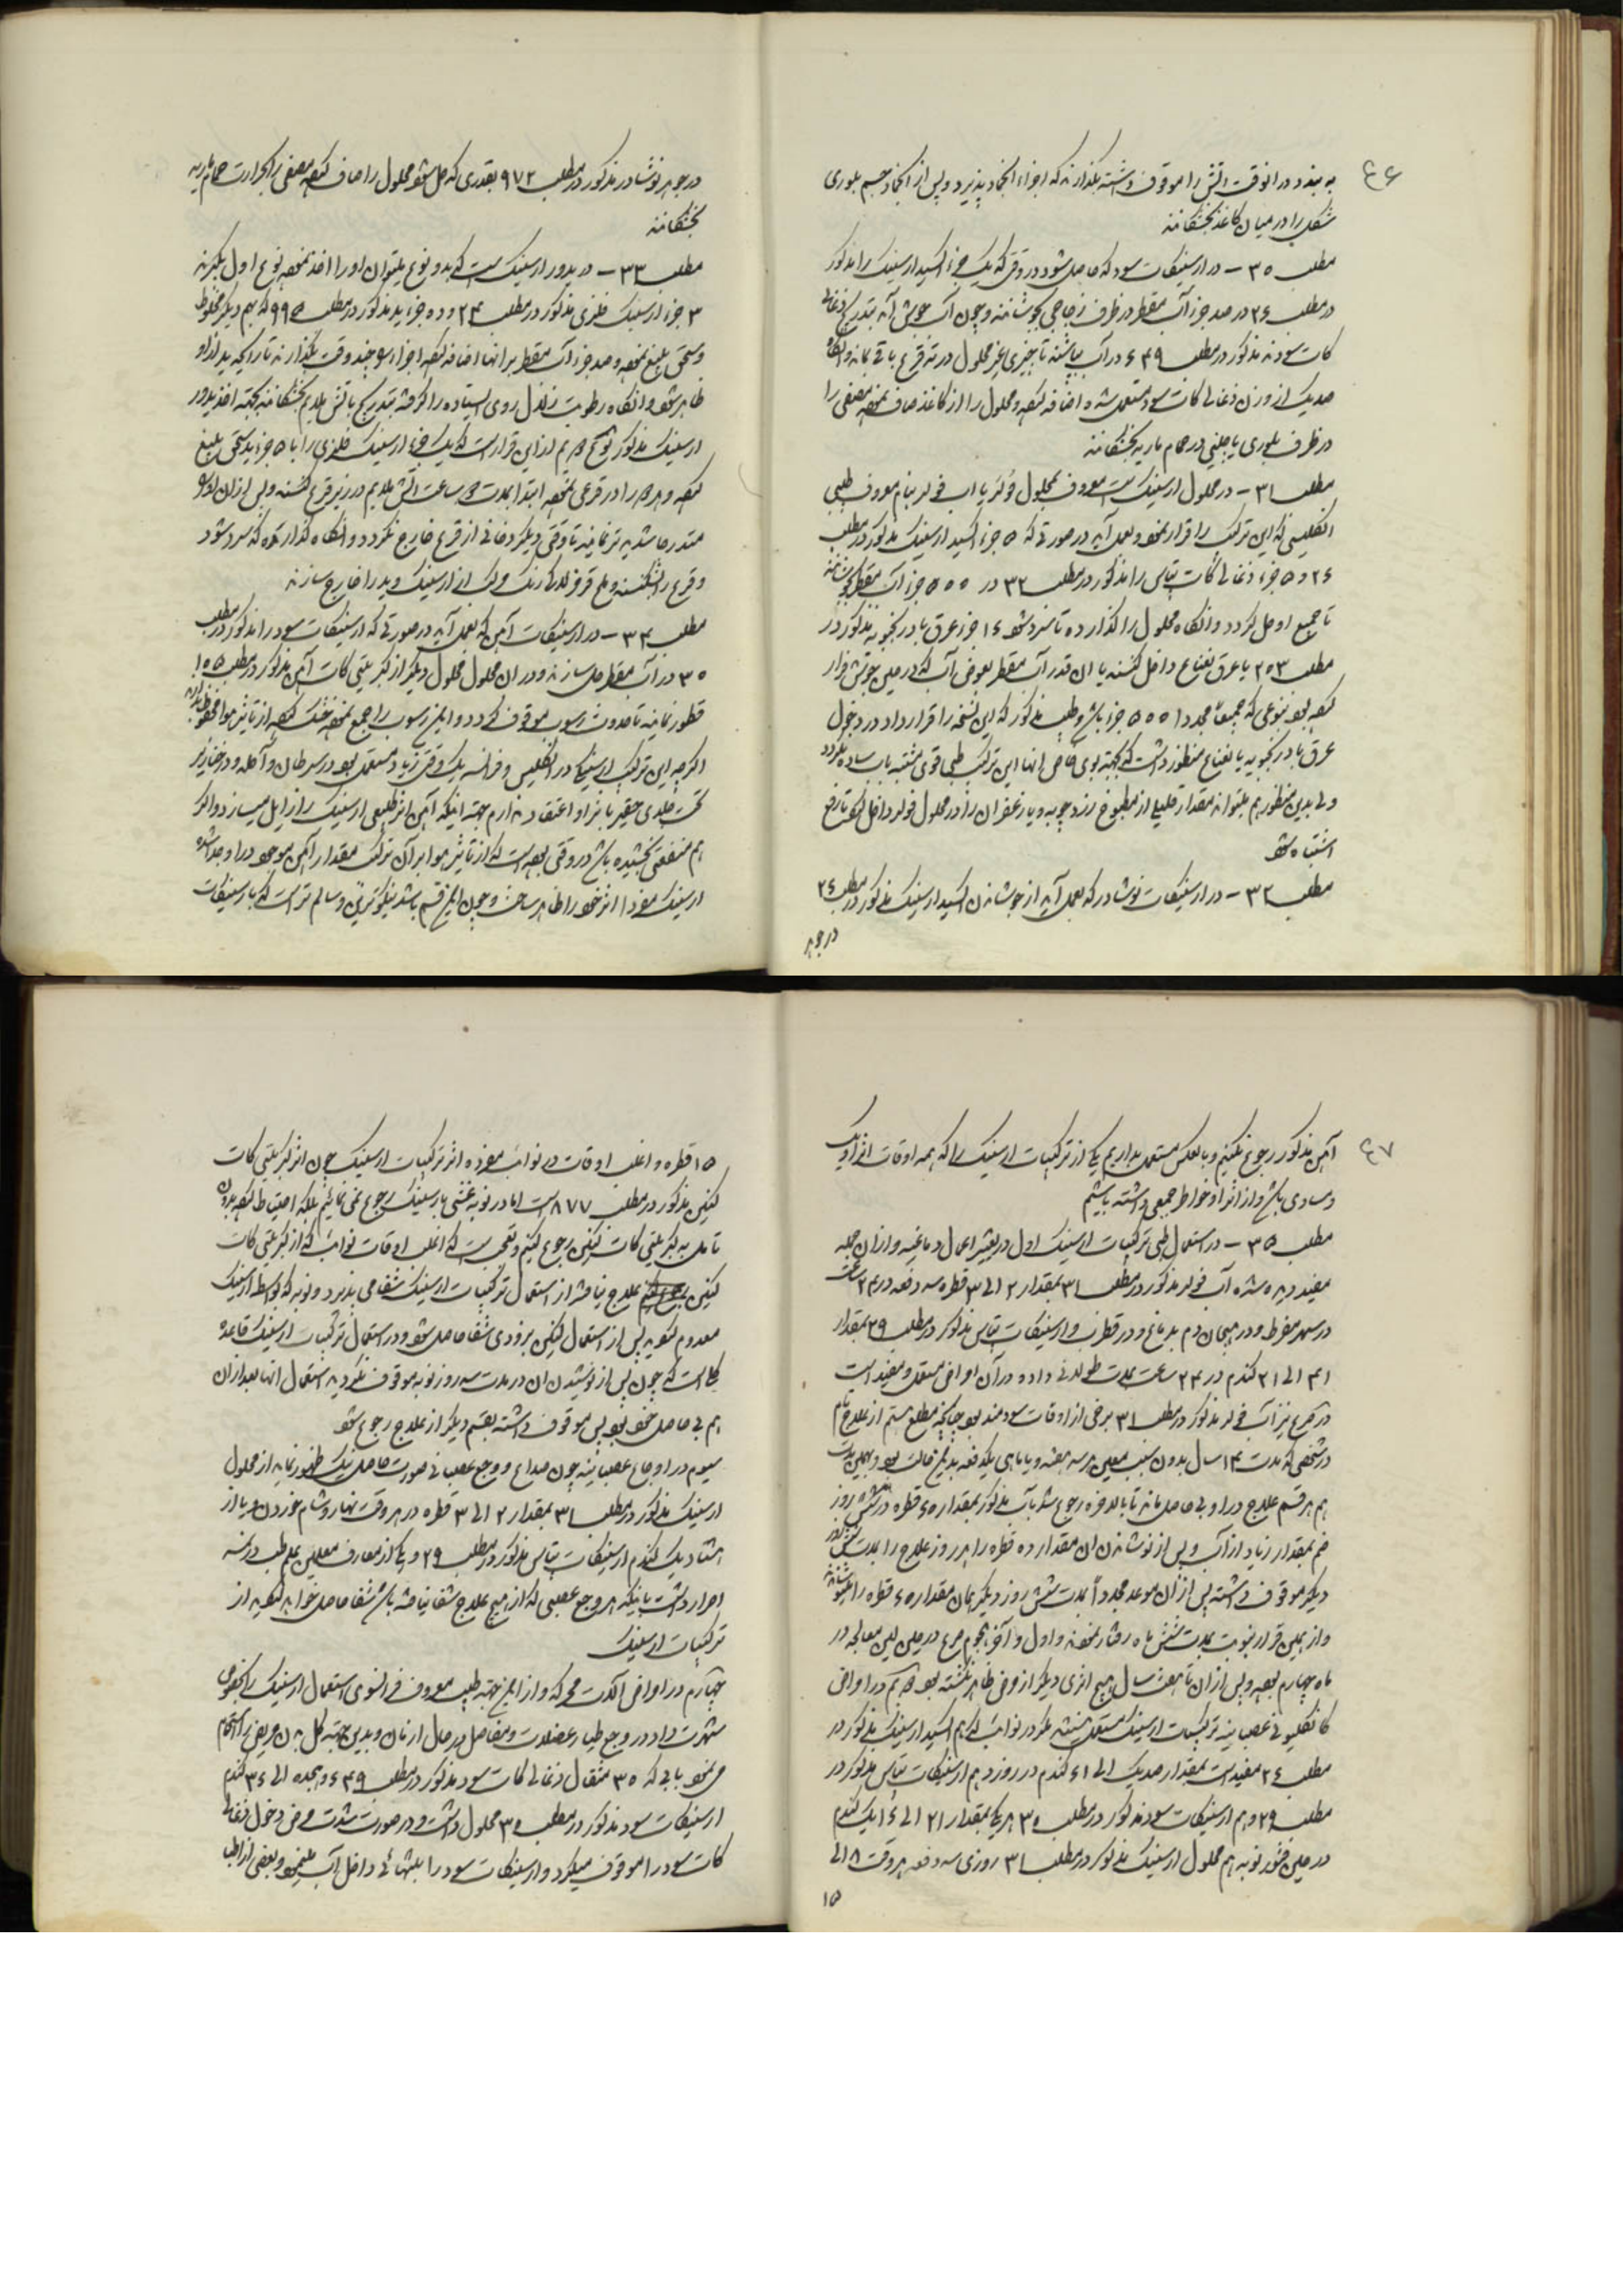 ۴۶
به بندد در انوقت اتش را موقوف داشته بگذارند که اجزاء انجماد پذیرد و پس از انجماد جسم بلوری
شکل را در میان کاغذ بخشکانند
مطلب ۳۰ – در ارسنیکات سود که حاصل شود در وقتی که یک جزء اکسید ارسنیک را مذکور
در مطلب ۲۶ در صد جزء آب مقطر در ظرف زجاجی بجوشانند و چون آب جوش آید بتدریج ذغالی
کات سود نه مذکور در مطلب ۶۴۹ در آب بپاشند تا چیزی غیر محلول در ته قرع باقی بماند و انگاه
صدیک از وزن ذغالی کات سود مستعمل شده اضافه کنند و محلول را از کاغذ صاف نموده مصفی را
در ظرف بلوری یا چینی در حمام ماریه بخشکانند
مطلب ۳۱ – در محلول ارسنیک است معروف بمحلول فولر یا اب فولر بنام معروف طبیبی
انگلیسی که این ترکیب را قرار نمود و بعمل آید در صورتی که ۵ جزء اکسید ارسنیک مذکور در مطلب
۲۶ و ۵ جزء ذغالی کات پتاس را مذکور در مطلب ۳۲ در ۵۰۰ جزء آب مقطر بجوشانند
تا جمیع او حل گردد و انگاه محلول را گذارده تا سرد شود ۱۶ جزء عرق بادرنجبویه مذکور در
مطلب ۲۵۳ یا عرق نعناع داخل کنند با ان قدر آب مقطر بعوض آب که در حین جوشش فرار
کرده بود بنوعی که جمیعاً مجددا ۵۰۰ جزء باشد و طبیب مذکور که این نسخه را قرار داد در دخول
عرق بادرنجبویه یا نعناع منظور داشت که بجهته بوی خاص انها این ترکیب طبی قوی مشتبه باب ساده نگردد
ولی بدین منظور هم میتوانند مقدار قلیلی از مطبوخ زردچوبه و یا زعفران را در محلول فولر داخل کنند تا رفع
اشتباه شود
مطلب ۳۲ – در ارسنیکات نوشادر که بعمل آید از جوشاندن اکسید ارسنیک مذکور در مطلب ۲۶
در جوهر
در جوهر نوشادر مذکور در مطلب ۹۷۲ بقدری که حل شود محلول را صاف کنند مصفی را بحرارت حمام ماریه
بخشکانند
مطلب ۳۳ – در یدور ارسنیک است که بدو نوع میتوان او را اخذ نمود نوع اول بگیرند
۳ جزء ارسنیک فلزی مذکور در مطلب ۲۴ و ده جزء ید مذکور در مطلب ۹۹۵ که بهم دیگر مخلوط
و سحق بلیغ نموده و صد جزء آب مقطر بر انها اضافه کنند اجزاء را چند وقت بگذارند تا رایحه ید از او
ظاهر شود و انگاه رطوبت زلال روی ایستاده را گرفته بتدریج باتش ملایم بخشکانند بجهته اخذ یدور
ارسنیک مذکور نوع دویم از این قرار است که یک جزء ارسنیک فلزی را با ۵ جزء ید سحق بلیغ
کنند و هر دو را در قرعی نموده ابتدا بمدت دو ساعت اتش ملایم در زیر قرع کنند و پس از ان او را
متدرجا شدید تر نمایند تا وقتی دیگر دخانی از قرع خارج نگردد و انگاه گذارند که سرد شود
و قرع را بشکنند و ملح قرمز لاکی رنگ مرکب از ارسنیک و ید را خارج سازند
مطلب ۳۴ – در ارسنیکات آهن که بعمل آید در صورتی که ارسنیکات سود را مذکور در مطلب
۳۰ در آب مقطر حل سازند و در ان محلول محلول دیگر از کبریتی کات آهن مذکور در مطلب ۱۰۵
قطور نمایند تا حدوث رسوب موقوف گردد و این رسوب را جمع نموده خشک کنند از تاثیر هوا محفوظ بدارند
اگر چه این ترکیب ارسنیک در انگلیس و فرانسه یک وقتی زیاد مستعمل بود در سرطان و آکله و در خنازیر
تحت جلدی حقیر باثر او اعتقاد ندارم بجهته اینکه آهن اثر طبیعی ارسنیک را زایل میسازد و اگر
هم منفعتی بخشیده باشد در وقتی بوده است که از تاثیر هوا بر آن ترکیب مقدار آهن موجود در او جدا شده
ارسنیک مفردا اثر خود را ظاهر ساخت و چون این قسم باشد نیکوترین و سالم تر است که بارسنیکات
۴۷
آهن مذکور رجوع نکنیم و بالعکس مستعمل بداریم یکی از ترکیبات ارسنیک را که همه اوقات اثر او یک
و مساوی باشد و از اثر او خواطر جمعی داشته باشیم
مطلب ۳۵ – در استعمال طبی ترکیبات ارسنیک اول در بیشتر اعمال دماغیه و از ان جمله
مفید دیده شده آب فولر مذکور در مطلب ۳۱ بمقدار ۲ الی ۳ قطره سه دفعه در ۲۴ ساعت
در سهر مفرط و در هیجان دم بدماغ و در قطرب و ارسنیکات پتاس مذکور در مطلب ۲۹ بمقدار
در ۲۴ ساعت بمدت طولانی داده در آن امراض مستعمل و مفید است
در صرع نیز آب فولر مذکور در مطلب ۳۱ برخی از اوقات سودمند بود چنانچه مطلع هستم از علاج تام
در شخصی که مدت ۱۴ سال بدون سبب معین هر سه هفته و یا ماهی یکدفعه بدین حالت بود و بهمین مدت
هم هر قسم علاج در او بی حاصل ماند تا بالاخره رجوع شد بآب مذکور بمقدار ۵ قطره در شش روز
ضم بمقدار زیاد از آب و پس از نوشاندن ان مقدار ده قطره را هر روز علاج را بمدت شش روز
دیگر موقوف داشته پس از ان موعد مجدداً بمدت شش روز دیگر همان مقدار ۵ قطره را مینوشاندند
و از همین قرار بنوبت بمدت شش ماه رفتار نمودند و اول و آخر هجوم صرع در حین این معالجه در
ماه چهارم بوده و پس از ان تا هفت سال هیچ اثری دیگر از مرض ظاهر نگشته بود دویم در امراض
کانکلیونی عصبانیه ترکیبات ارسنیک مستعمل نیستند مگر در نوائب که هم اکسید ارسنیک مذکور در
مطلب ۲۶ مفید است بمقدار صدیک الی گندم در روز و هم ارسنیکات پتاس مذکور در
مطلب ۲۹ و هم ارسنیکات سود مذکور در مطلب ۳۰ هر یک بمقدار گندم
در حین فتور نوبه هم محلول ارسنیک مذکور در مطلب ۳۱ روزی سه دفعه هر وقت ۸ الی
۱۵
۱۵ قطره و اغلب اوقات در نوائب مفرده اثر ترکیبات ارسنیک چون اثر کبریتی کات
کنین مذکور در مطلب ۸۷۷ است اما در نوبه غشی بارسنیک رجوع نمی نمائیم بلکه احتیاط کنند بدون
تامل به کبریتی کات کنین رجوع کنیم و تعجب است که اغلب اوقات نوائب که از کبریتی کات
کنین علاج نیافتند از استعمال ترکیبات ارسنیک شفا می پذیرد و نوبه که بواسطه ارسنیک
معدوم نگردید پس از استعمال کنین بزودی شفا حاصل شود و در استعمال ترکیبات ارسنیک قاعده
کلی است که چون پس از نوشیدن ان در مدت سه روز نوبه موقوف نگردید استعمال انها بعد از ان
هم بی حاصل خواهد بود پس موقوف داشته بقسم دیگر از علاج رجوع شود
سیوم در اوجاع عصبانیه چون صداع و وجع عصبانی صورت حاصل نیک ظهور نماید از محلول
ارسنیک مذکور در مطلب ۳۱ بمقدار ۲ الی ۳ قطره در هر وقت نهار و شام خوردن و یا از
هشتاد یک گندم ارسنیکات پتاس مذکور در مطلب ۲۹ و یکی از معارف معلمین علم طب در نمسه
اصرار داشت باینکه هر وجع عصبی که از هیچ علاج شفا نیافته باشد شفا حاصل خواهد کرد از
ترکیبات ارسنیک
چهارم در امراض آلات محرکه و از این جهته طبیب معروف فرانسوی استعمال ارسنیک را بخصوص
شهرت داد در وجع طیار عضلات و مفاصل در حال ازمان و بدین جهته کل بدن مریض را استحمام
می نمود بابی که ۳۰ مثقال ذغالی کات سود مذکور در مطلب ۶۴۹ و هجده الی ۳۶ گندم
ارسنیکات سود مذکور در مطلب ۳۰ محلول داشت و در صورت شدت مرض دخول ذغالی
کات سود را موقوف میکرد و ارسنیکات سود را بتنهائی داخل آب مینمود و بعضی از اطبا